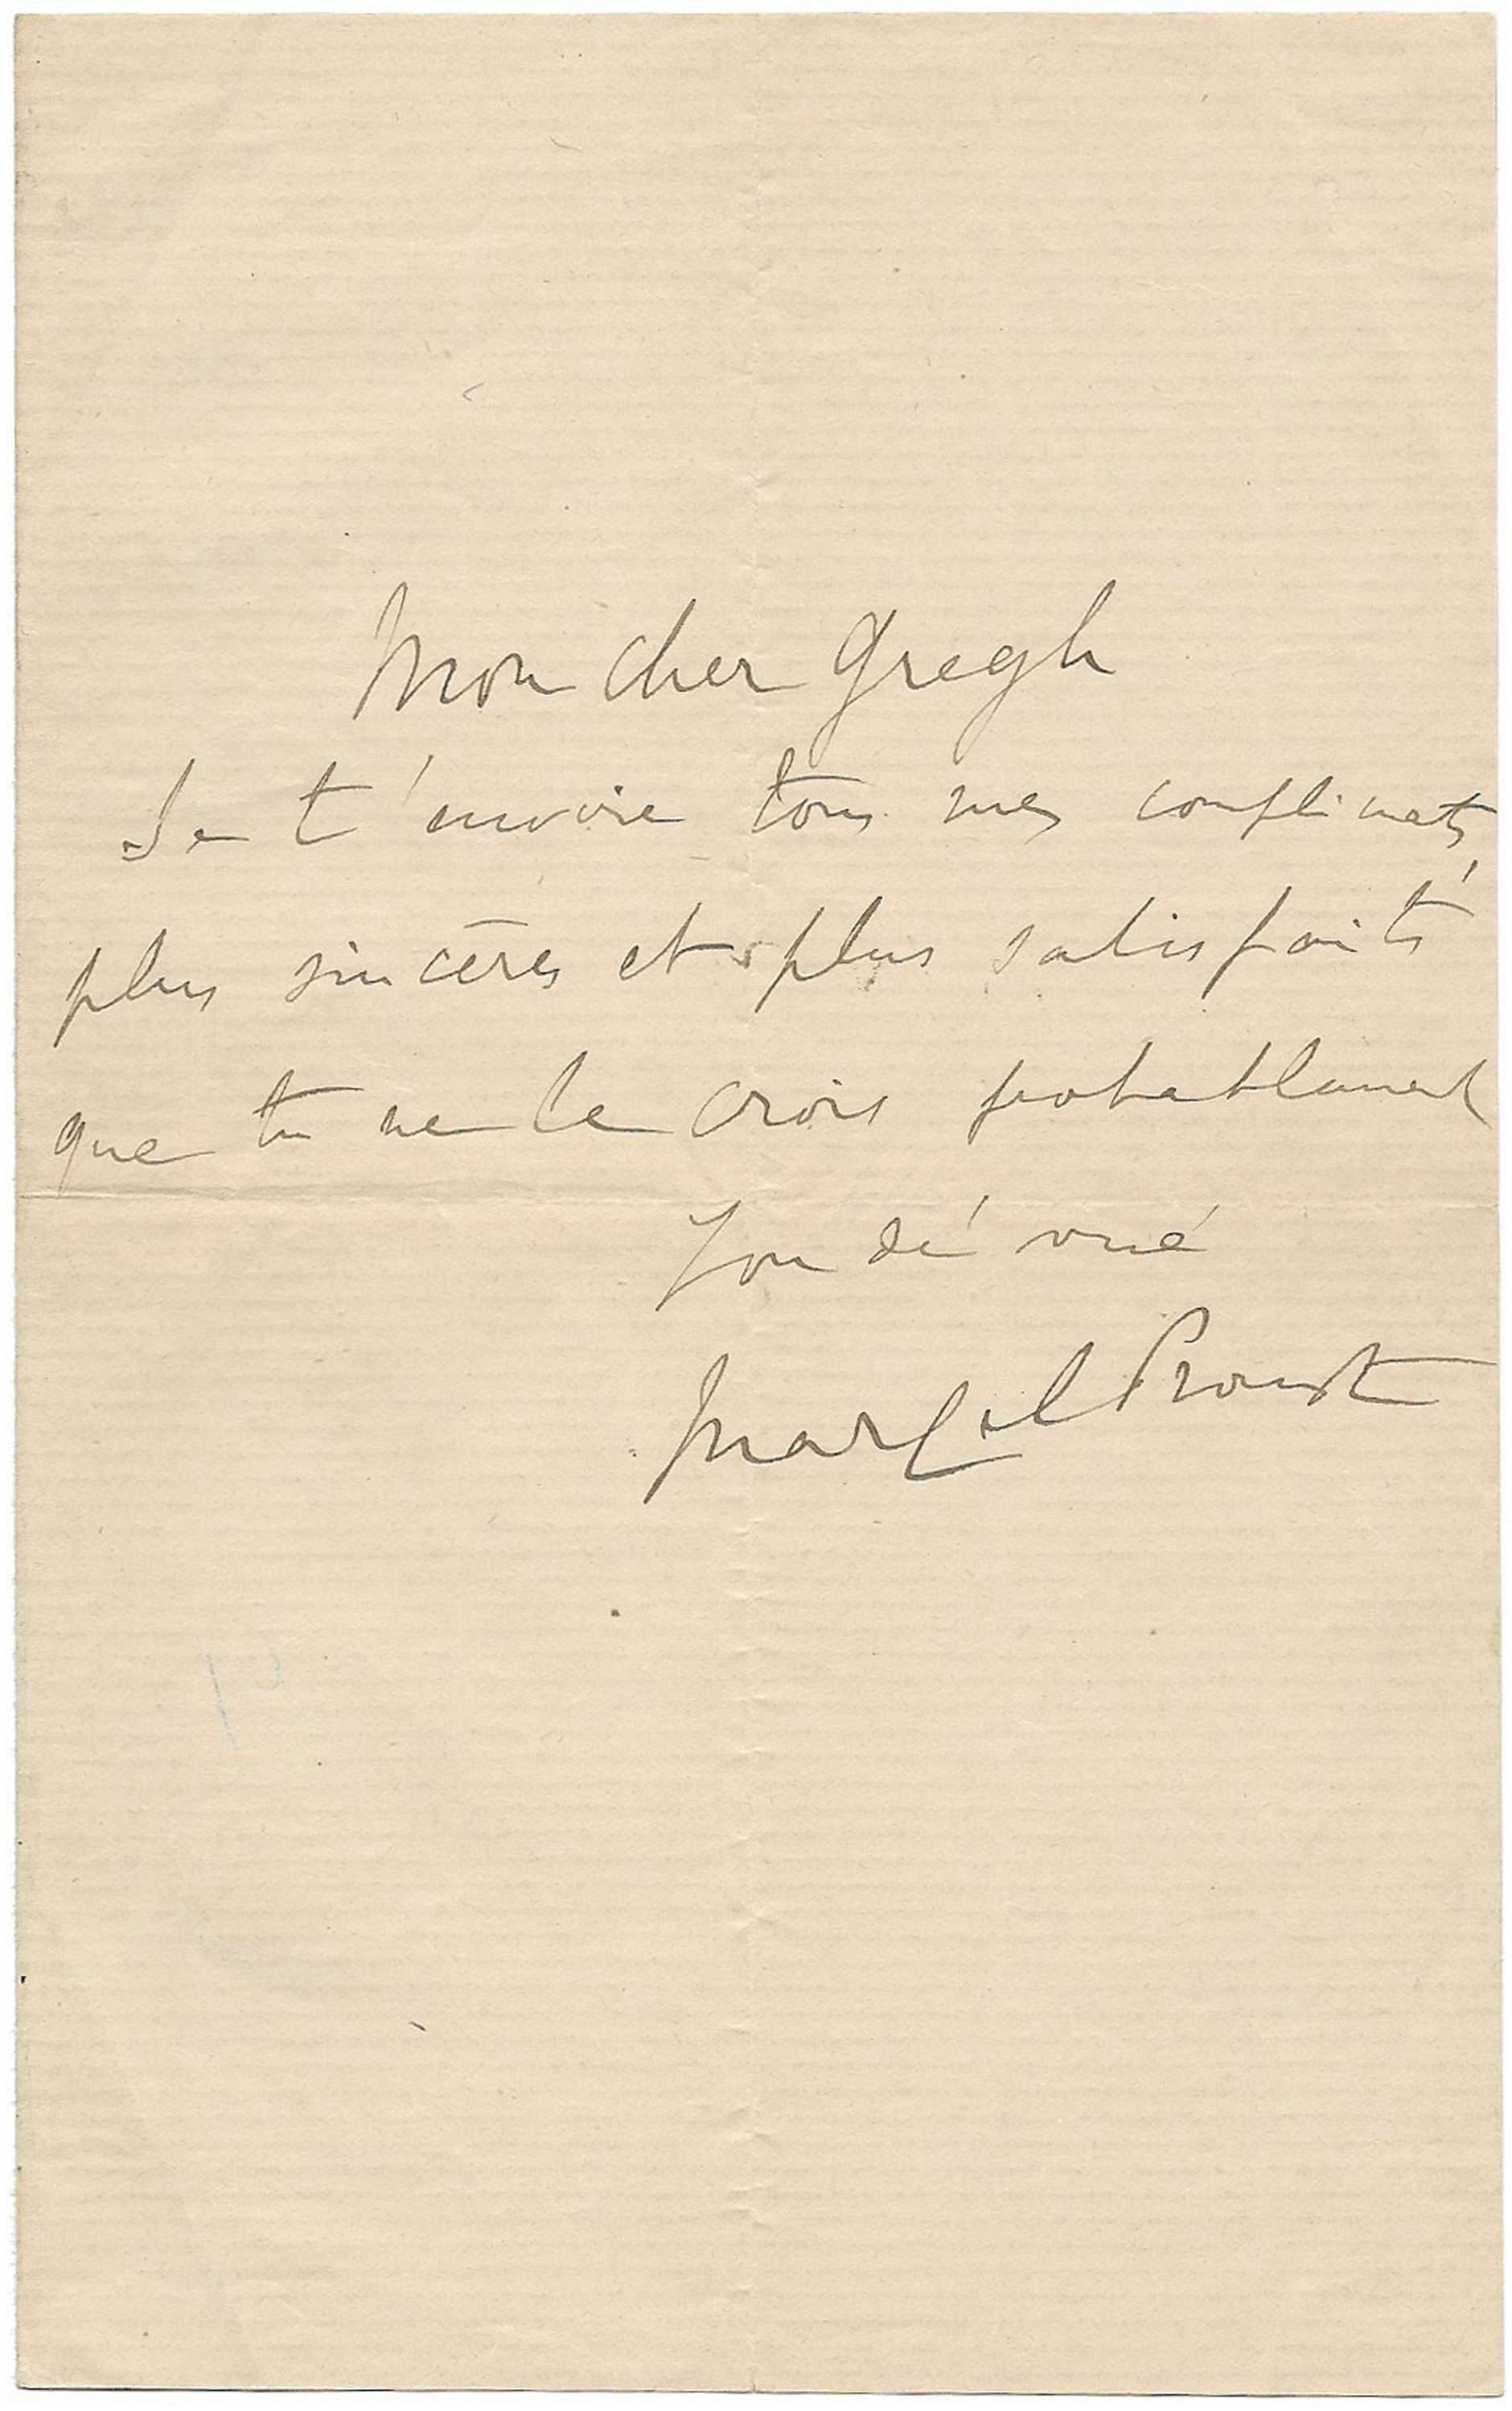 Mon cher Gregh
Je t'envoie tous mes compliments
plus sincères et plus satisfaits
que tu ne le crois probablement
Ton dévoué
Marcel Proust